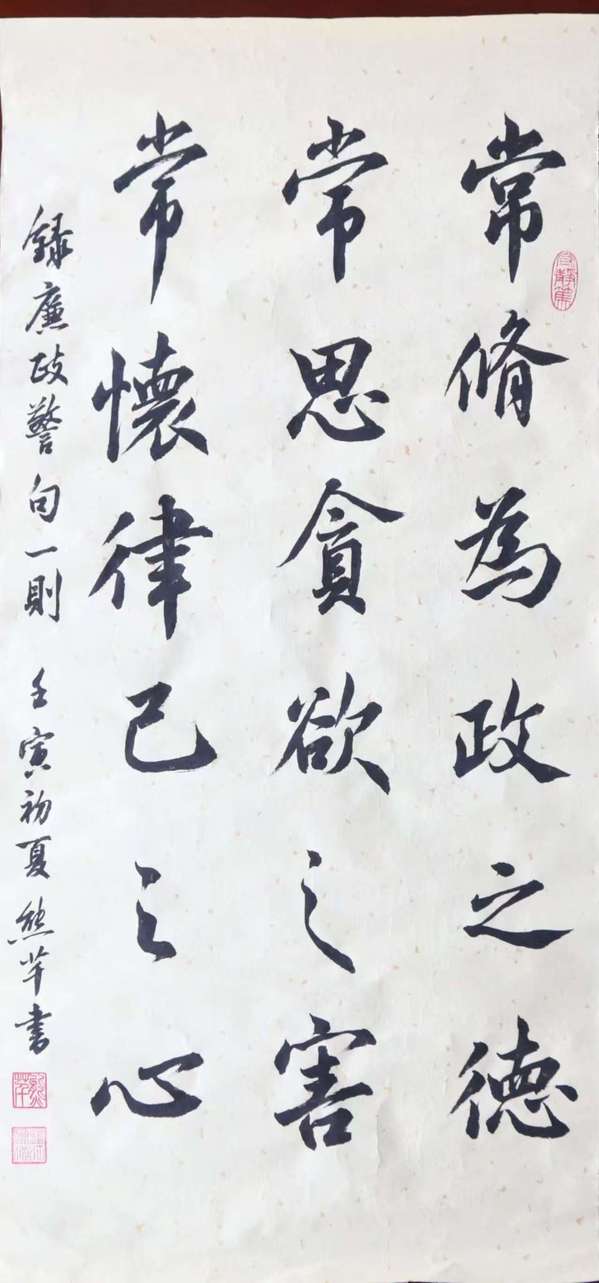 常脩為政之德
常思貪欲之害
常懷律己之心
錄廉政警句一則 壬寅初夏熊芊書